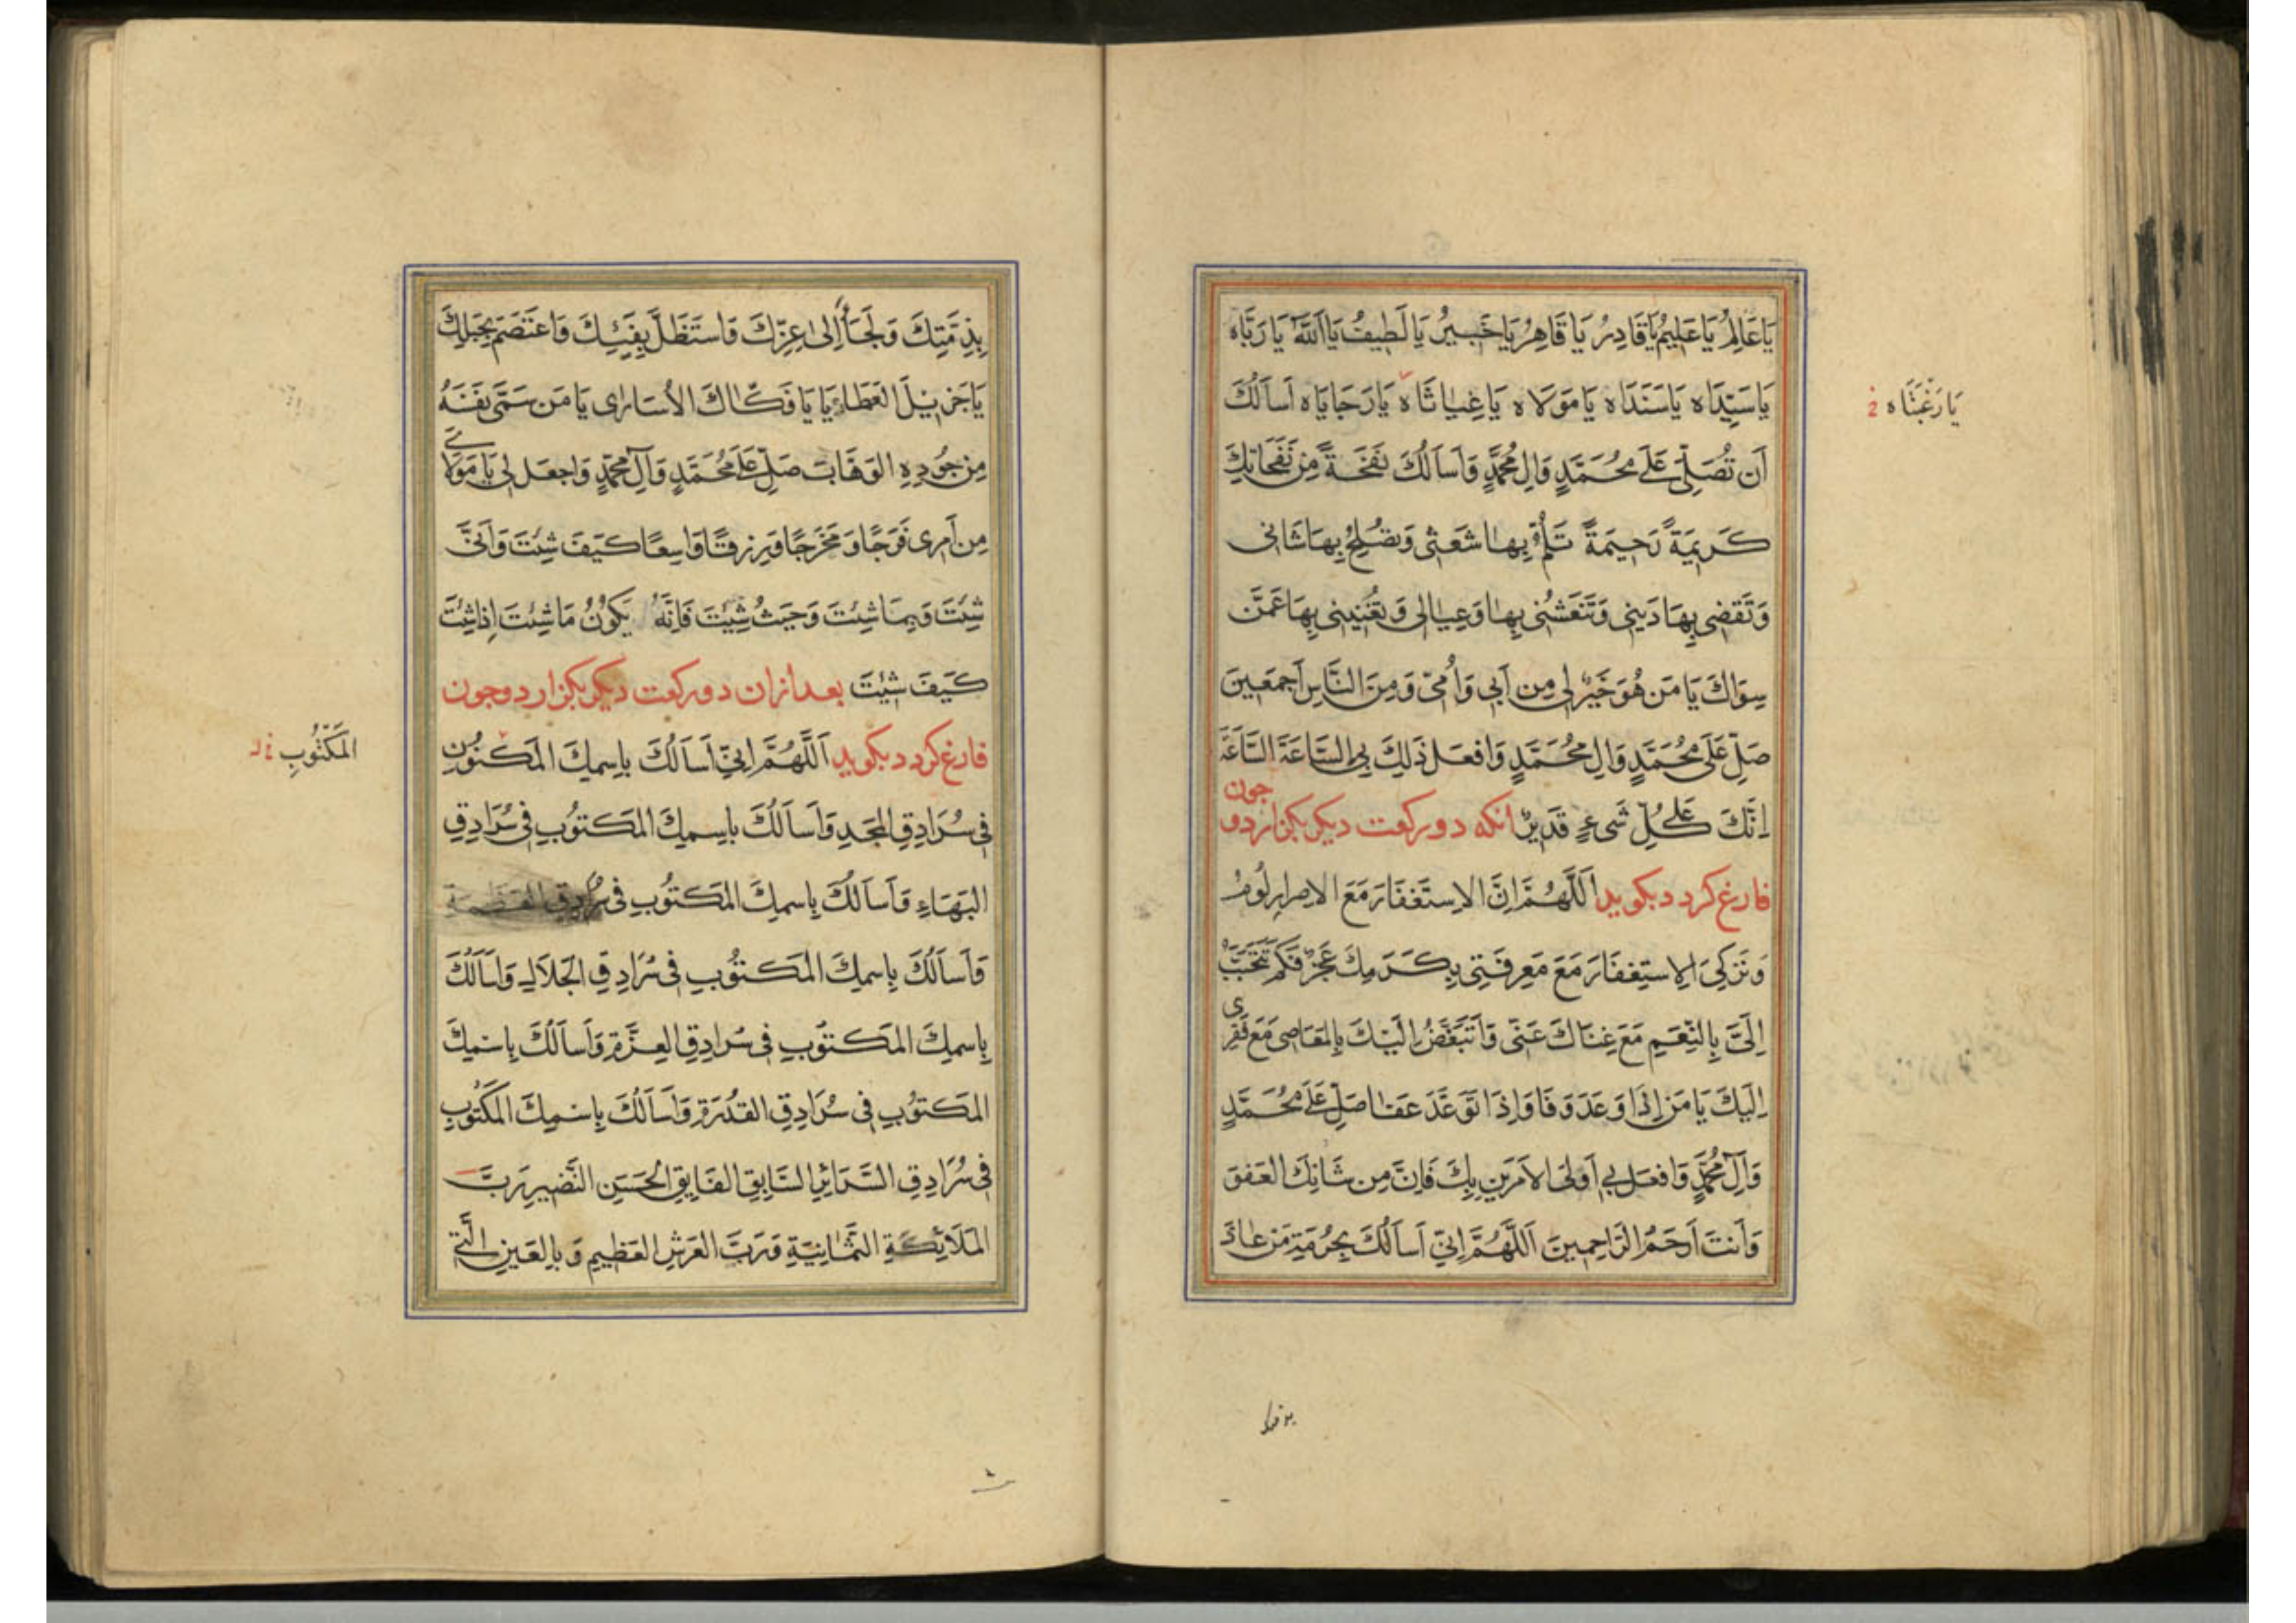 يَا عَالِمُ يَا عَلِيمُ يَا قَادِرُ يَا قَاهِرُ يَا خَبِيرُ يَا لَطِيفُ يَا اَللّٰهُ يَا رَبَّاه
يَا سَيِّدَاه يَا سَنَدَاه يَا مَوْلَاه يَا غِيَاثَاه يَا رَجَايَاه اَسْاَلُكَ
يَا رَغْبَتَاه
اَنْ تُصَلِّىَ عَلٰى مُحَمَّدٍ وَالِ مُحَمَّدٍ وَاَسْاَلُكَ نَفْحَةً مِنْ نَفَحَاتِكَ
كَرِيمَةً رَحِيمَةً تَلُمُّ بِهَا شَعَثِى وَتُصْلِحُ بِهَا شَانِى
وَتَقْضِى بِهَا دَيْنِى وَتَنْعَشُنِى بِهَا وَعِيَالِى وَتُغْنِينِى بِهَا عَمَّنْ
سِوَاكَ يَا مَنْ هُوَ خَيْرٌ لِى مِنْ اَبِى وَاُمِّى وَمِنَ النَّاسِ اَجْمَعِينَ
صَلِّ عَلٰى مُحَمَّدٍ وَالِ مُحَمَّدٍ وَافْعَلْ ذٰلِكَ بِىَ السَّاعَةَ السَّاعَةَ
اِنَّكَ عَلٰى كُلِّ شَىْءٍ قَدِيرٌ انكه دو ركعت ديكر بكزارد و جون
فارغ كردد بكويد اَللّٰهُمَّ اِنَّ الِاسْتِغْفَارَ مَعَ الْاِصْرَارِ لُومٌ
وَتَرْكِىَ الِاسْتِغْفَارَ مَعَ مَعْرِفَتِى بِكَرَمِكَ عَجْزٌ فَكَمْ تَتَحَبَّبُ
اِلَىَّ بِالنِّعَمِ مَعَ غِنَاكَ عَنِّى وَاَتَبَغَّضُ اِلَيْكَ بِالْمَعَاصِى مَعَ فَقْرِى
اِلَيْكَ يَا مَنْ اِذَا وَعَدَ وَفَا وَاِذَا تَوَعَّدَ عَفَا صَلِّ عَلٰى مُحَمَّدٍ
وَآلِ مُحَمَّدٍ وَافْعَلْ بِى اَوْلَى الْاَمْرَيْنِ بِكَ فَاِنَّ مِنْ شَانِكَ الْعَفْوَ
وَاَنْتَ اَرْحَمُ الرَّاحِمِينَ اَللّٰهُمَّ اِنِّى اَسْاَلُكَ بِحُرْمَةِ مَنْ عَاذَ
بِذِمَّتِكَ وَلَجَأَ اِلٰى عِزِّكَ وَاسْتَظَلَّ بِفَيْئِكَ وَاعْتَصَمَ بِحَبْلِكَ
يَا جَزِيلَ الْعَطَاءِ يَا يَا فَكَّاكَ الْاُسَارٰى يَا مَنْ سَمّٰى نَفْسَهُ
مِنْ جُودِهِ الْوَهَّابَ صَلِّ عَلٰى مُحَمَّدٍ وَآلِ مُحَمَّدٍ وَاجْعَلْ لِى يَا مَوْلَاىَ
مِنْ اَمْرِى فَرَجًا وَمَخْرَجًا وَرِزْقًا وَاسِعًا كَيْفَ شِئْتَ وَاَنّٰى
شِئْتَ وَبِمَا شِئْتَ وَحَيْثُ شِئْتَ فَاِنَّهُ يَكُونُ مَا شِئْتَ اِذَا شِئْتَ
كَيْفَ شِئْتَ بعد ازان دو ركعت ديكر بكزارد و جون
فارغ كردد بكويد اَللّٰهُمَّ اِنِّى اَسْاَلُكَ بِاسْمِكَ الْمَكْنُونِ
الْمَكْتُوبِ
فِى سُرَادِقِ الْمَجْدِ وَاَسْاَلُكَ بِاسْمِكَ الْمَكْتُوبِ فِى سُرَادِقِ
الْبَهَاءِ وَاَسْاَلُكَ بِاسْمِكَ الْمَكْتُوبِ فِى سُرَادِقِ الْعَظَمَةِ
وَاَسْاَلُكَ بِاسْمِكَ الْمَكْتُوبِ فِى سُرَادِقِ الْجَلَالِ وَاَسْاَلُكَ
بِاسْمِكَ الْمَكْتُوبِ فِى سُرَادِقِ الْعِزَّةِ وَاَسْاَلُكَ بِاسْمِكَ
الْمَكْتُوبِ فِى سُرَادِقِ الْقُدْرَةِ وَاَسْاَلُكَ بِاسْمِكَ الْمَكْتُوبِ
فِى سُرَادِقِ السَّرَائِرِ السَّابِقِ الْفَايِقِ الْحَسَنِ النَّضِيرِ رَبِّ
الْمَلَائِكَةِ الثَّمَانِيَةِ وَرَبَّ الْعَرْشِ الْعَظِيمِ وَبِالْعَيْنِ الَّتِى